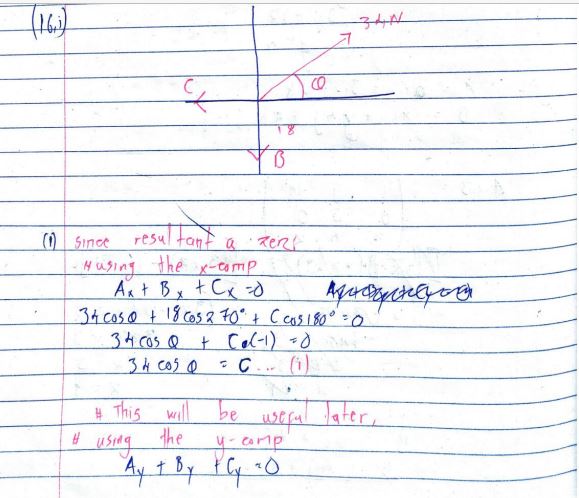 (16,i)
34N
C
θ
18
B
(i) since resultant a zero
# using the x-comp
Ax + Bx + Cx = 0
34 cos θ + 18 cos 270° + C cos 180° = 0
34 cos θ + C.(-1) = 0
34 cos θ = C ... (i)
# This will be useful later,
# using the y-comp
Ay + By + Cy = 0